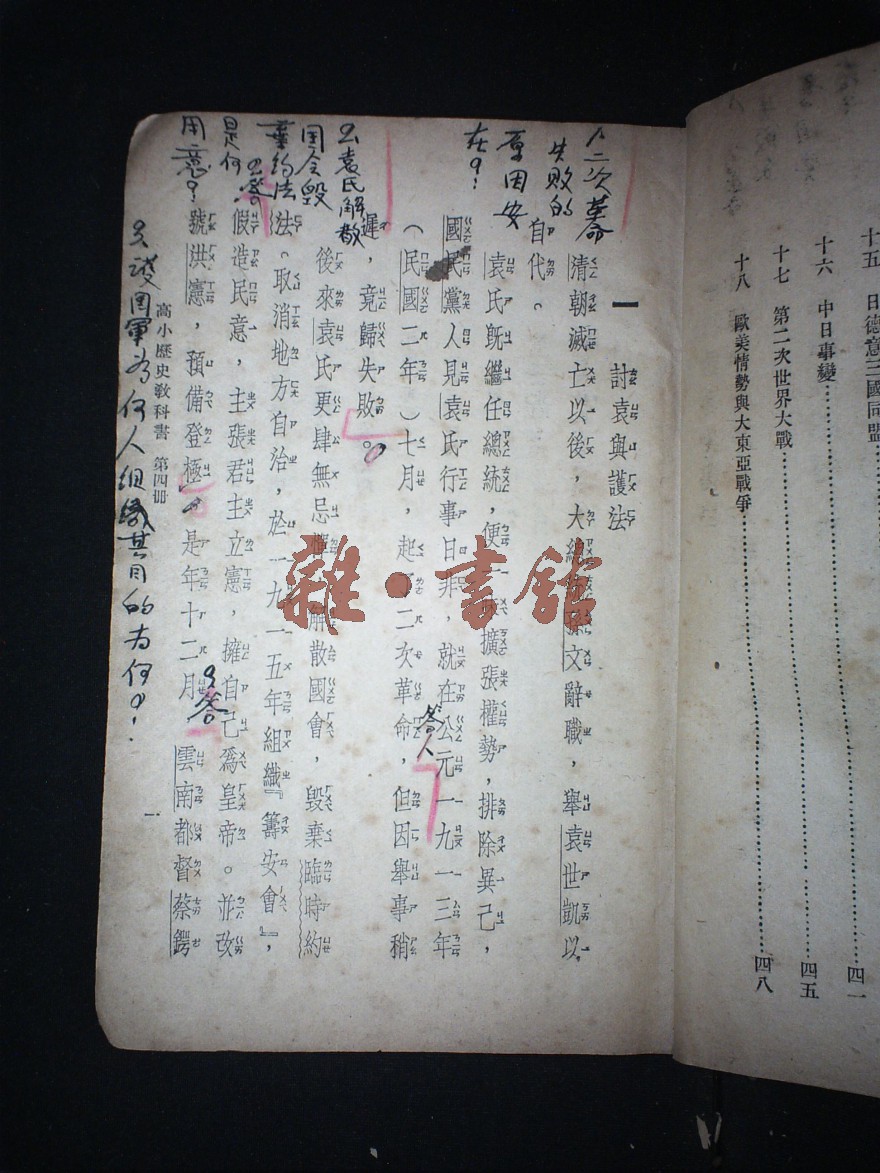 十五　日德意三國同盟……四一
十六　中日事變……四五
十七　第二次世界大戰
十八　歐美情勢與大東亞戰爭……四八
一　討袁與護法
清朝滅亡以後，大總統孫文辭職，舉袁世凱以
自代。
袁氏既繼任總統，便一擴張權勢，排除異己，
國民黨人見袁氏行事日非，就在公元一九一三年
（民國二年）七月，起二次革命，但因舉事稍
遲，竟歸失敗。
後來袁氏更肆無忌憚，解散國會，毀棄臨時約
法。取消地方自治，於一九一五年組織『籌安會』，
假造民意，主張君主立憲，擁自己爲皇帝。並改
號洪憲，預備登極。是年十二月雲南都督蔡鍔
高小歷史教科書　第四冊
一
二次革命
失敗的
原因安
在？
2袁氏解散
国会毀
棄約法
是何
用意？
3護国軍為何人組織其目的为何？
答
2答
3答
雜·書館